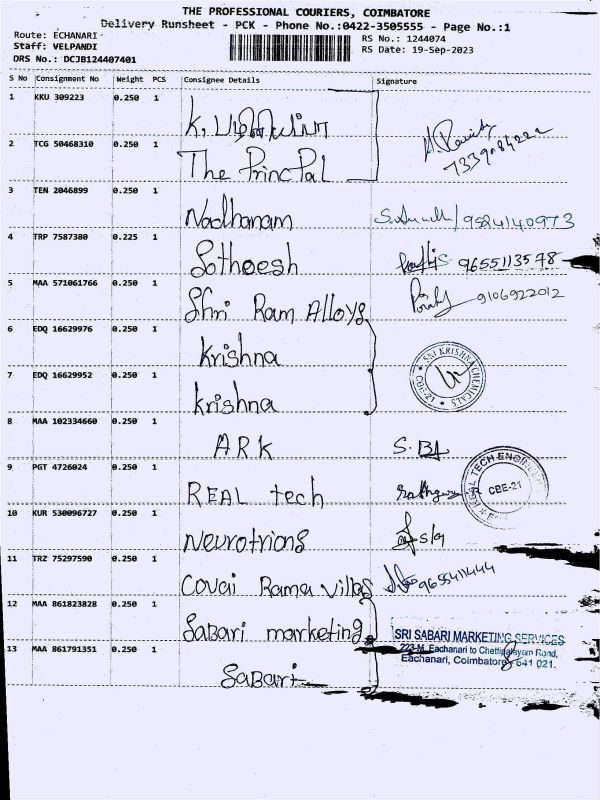 THE PROFESSIONAL COURIERS, COIMBATORE
Delivery Runsheet - PCK - Phone No.:0422-3505555 - Page No.:1
Route: ECHANARI
Staff: VELPANDI
DRS No.: DCJB124407401
RS No.: 1244074
RS Date: 19-Sep-2023
S No Consignment No Weight PCS Consignee Details Signature
1 KKU 309223 0.250 1 K.
2 TCG 50468310 0.250 1 The Princpal
7339084222
3 TEN 2046899 0.250 1 Nadhanam 9524140973
4 TRP 7587380 0.225 1 Sotheesh 9655113578
5 MAA 571061766 0.250 1 Shri Ram Alloys 9106922012
6 EDQ 16629976 0.250 1 Krishna
7 EDQ 16629952 0.250 1 Krishna
SRI KRISHNA CHEMICALS
CBE-21
8 MAA 102334660 0.250 1 ARK S.
9 PGT 4726024 0.250 1 REAL tech
TECH ENGINEE
CBE-21
10 KUR 530096727 0.250 1 Neurotrions
11 TRZ 75297590 0.250 1 Covai Rama villas 9655411444
12 MAA 861823828 0.250 1 Sabari marketing
SRI SABARI MARKETING SERVICES
223-M, Eachanari to Chettipalayam Road,
Eachanari, Coimbatore - 641 021.
13 MAA 861791351 0.250 1 Sabari